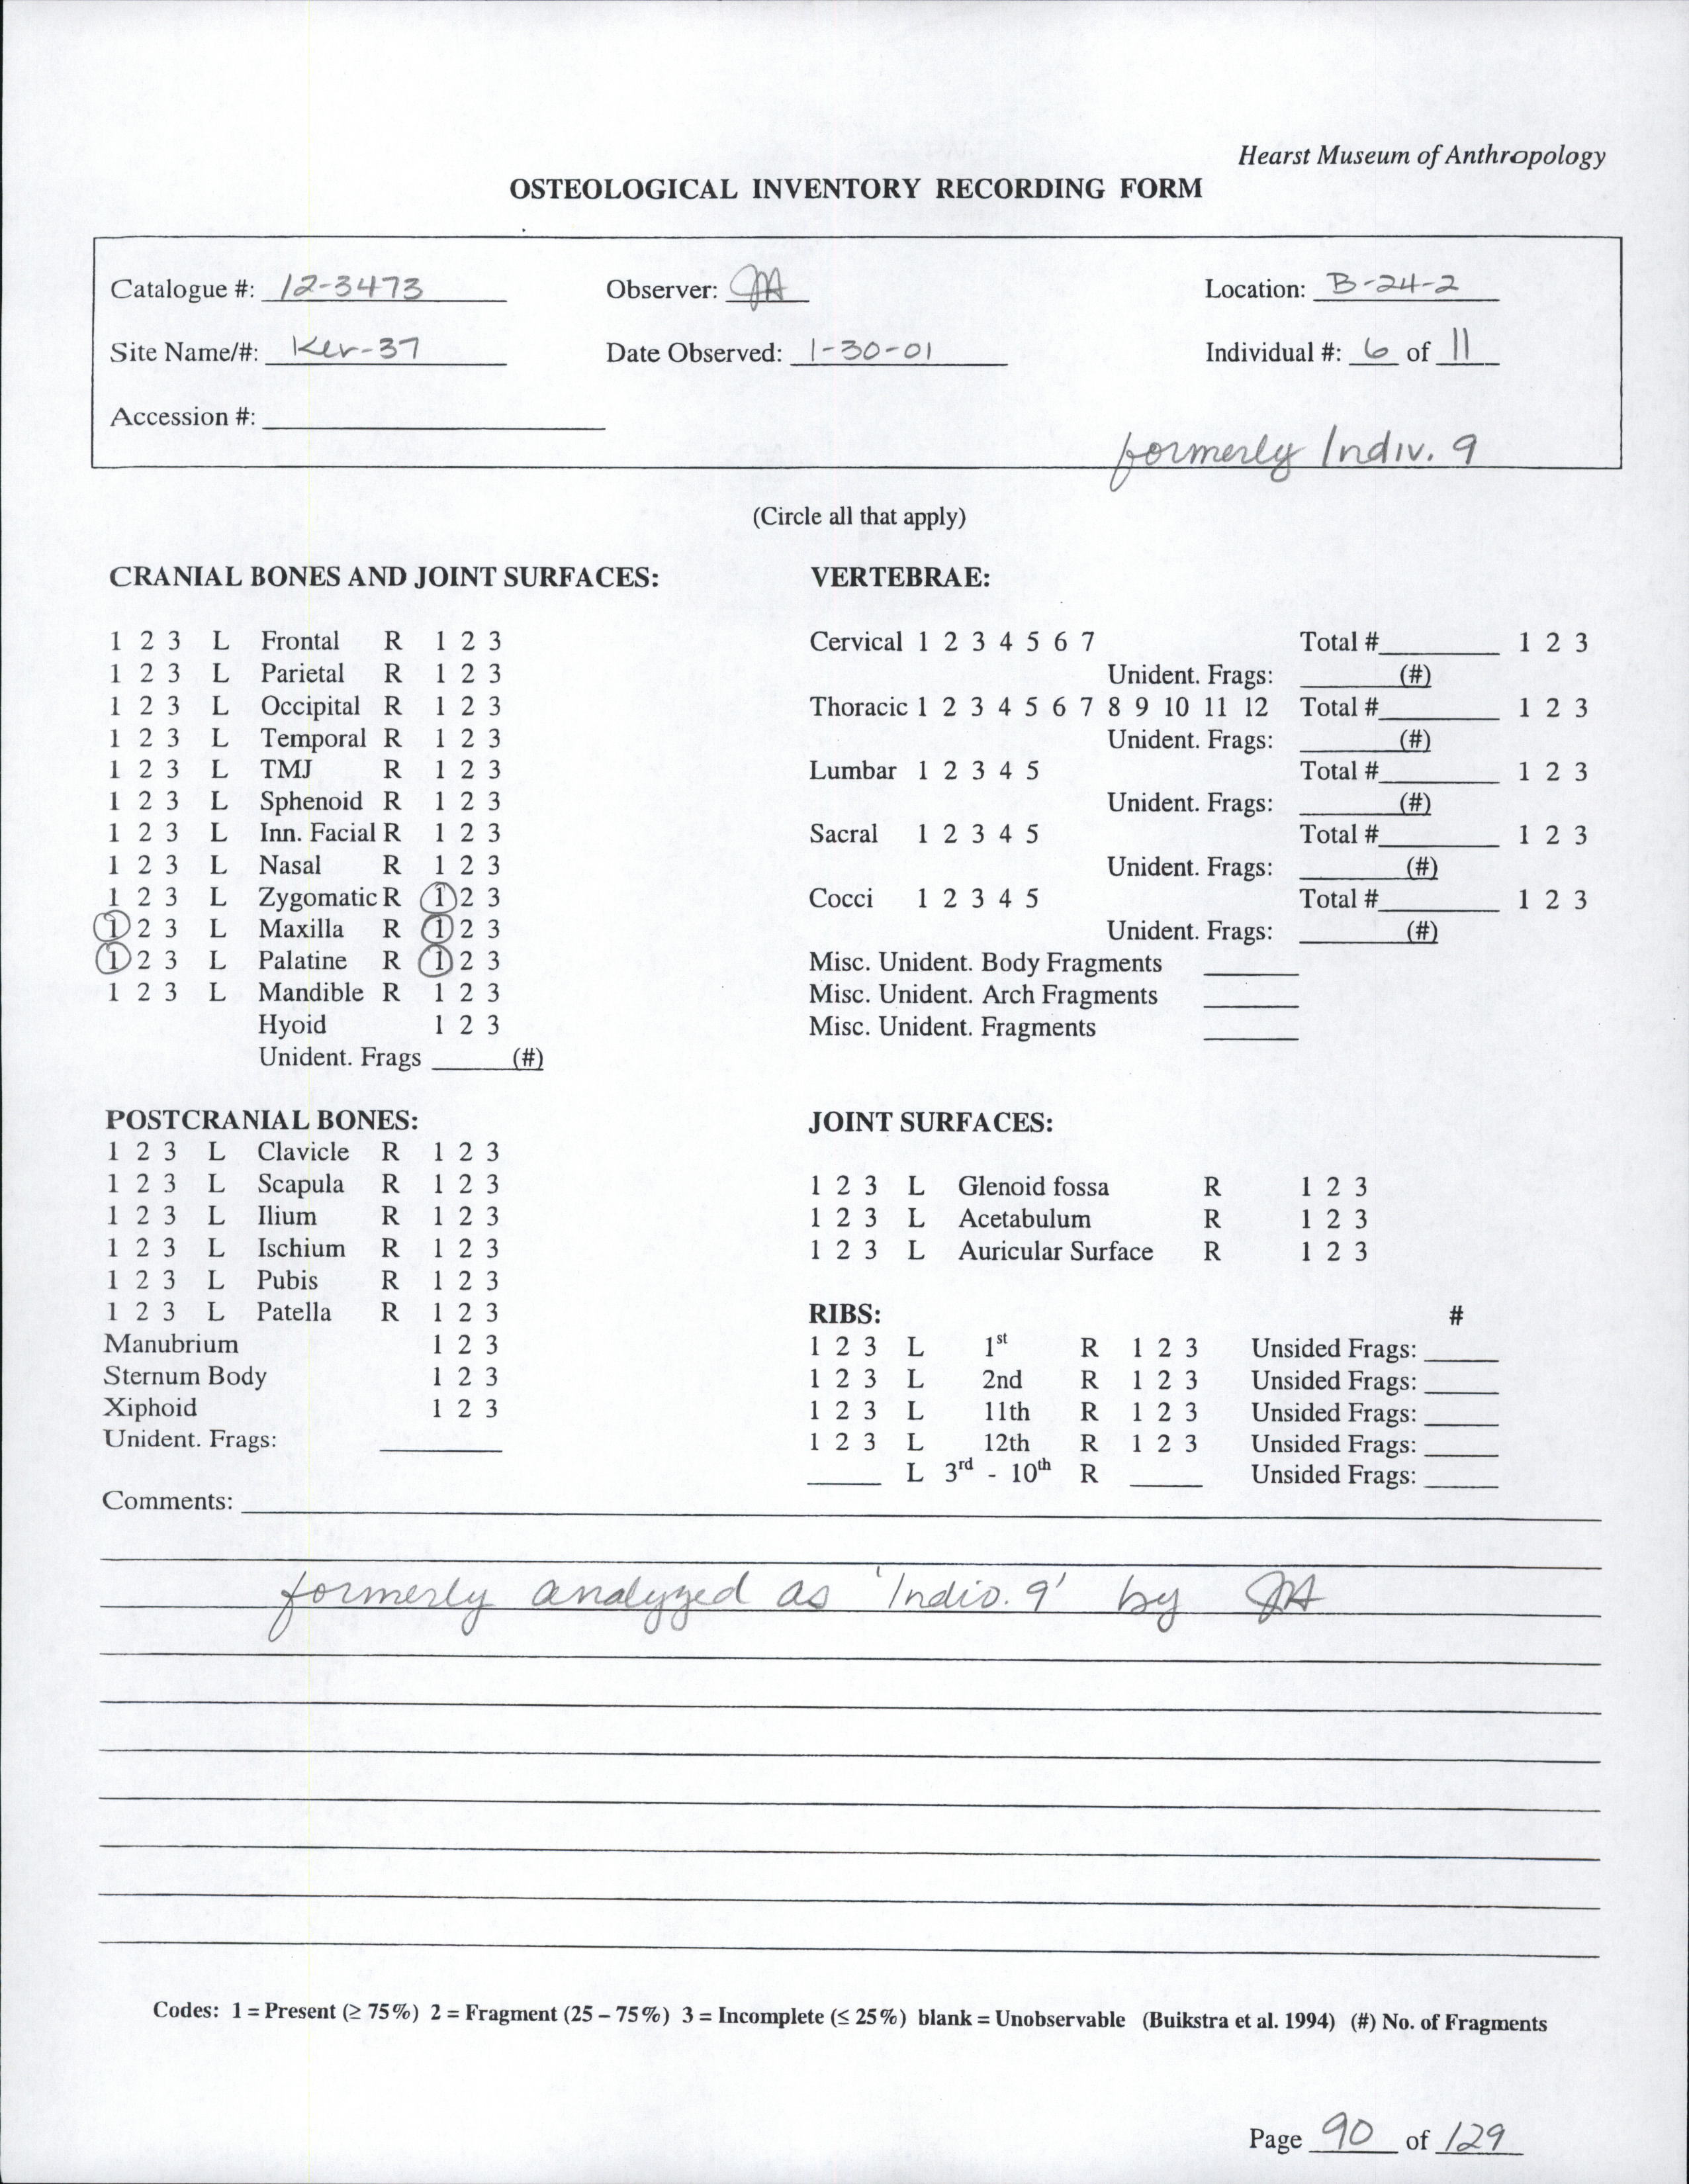 Hearst Museum of Anthropology
OSTEOLOGICAL INVENTORY RECORDING FORM
Catalogue #: 12-3473 Observer: JA Location: B-24-2
Site Name/#: Ker-37 Date Observed: 1-30-01 Individual #: 6 of 11
Accession #:
formerly Indiv. 9
(Circle all that apply)
CRANIAL BONES AND JOINT SURFACES:
1 2 3 L Frontal R 1 2 3
1 2 3 L Parietal R 1 2 3
1 2 3 L Occipital R 1 2 3
1 2 3 L Temporal R 1 2 3
1 2 3 L TMJ R 1 2 3
1 2 3 L Sphenoid R 1 2 3
1 2 3 L Inn. Facial R 1 2 3
1 2 3 L Nasal R 1 2 3
1 2 3 L Zygomatic R 1 2 3
1 2 3 L Maxilla R 1 2 3
1 2 3 L Palatine R 1 2 3
1 2 3 L Mandible R 1 2 3
Hyoid 1 2 3
Unident. Frags (#)
VERTEBRAE:
Cervical 1 2 3 4 5 6 7 Total # 1 2 3
Unident. Frags: (#)
Thoracic 1 2 3 4 5 6 7 8 9 10 11 12 Total # 1 2 3
Unident. Frags: (#)
Lumbar 1 2 3 4 5 Total # 1 2 3
Unident. Frags: (#)
Sacral 1 2 3 4 5 Total # 1 2 3
Unident. Frags: (#)
Cocci 1 2 3 4 5 Total # 1 2 3
Unident. Frags: (#)
Misc. Unident. Body Fragments
Misc. Unident. Arch Fragments
Misc. Unident. Fragments
POSTCRANIAL BONES:
1 2 3 L Clavicle R 1 2 3
1 2 3 L Scapula R 1 2 3
1 2 3 L Ilium R 1 2 3
1 2 3 L Ischium R 1 2 3
1 2 3 L Pubis R 1 2 3
1 2 3 L Patella R 1 2 3
Manubrium 1 2 3
Sternum Body 1 2 3
Xiphoid 1 2 3
Unident. Frags:
JOINT SURFACES:
1 2 3 L Glenoid fossa R 1 2 3
1 2 3 L Acetabulum R 1 2 3
1 2 3 L Auricular Surface R 1 2 3
RIBS: #
1 2 3 L 1st R 1 2 3 Unsided Frags:
1 2 3 L 2nd R 1 2 3 Unsided Frags:
1 2 3 L 11th R 1 2 3 Unsided Frags:
1 2 3 L 12th R 1 2 3 Unsided Frags:
L 3rd - 10th R Unsided Frags:
Comments:
formerly analyzed as 'Indiv. 9' by JA
Codes: 1 = Present (≥ 75%) 2 = Fragment (25 – 75%) 3 = Incomplete (≤ 25%) blank = Unobservable (Buikstra et al. 1994) (#) No. of Fragments
Page 90 of 129